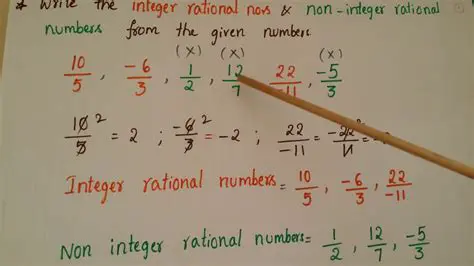 * Write the integer rational nos & non-integer rational
numbers from the given numbers
(x) (x) (x)
10/5 , -6/3 , 1/2 , 12/7 , 22/-11 , -5/3
10/5 2 = 2 ; -6/3 2 = -2 ; 22/-11 = -22/11 2 =
Integer rational numbers = 10/5 , -6/3 , 22/-11
Non integer rational numbers = 1/2 , 12/7 , -5/3